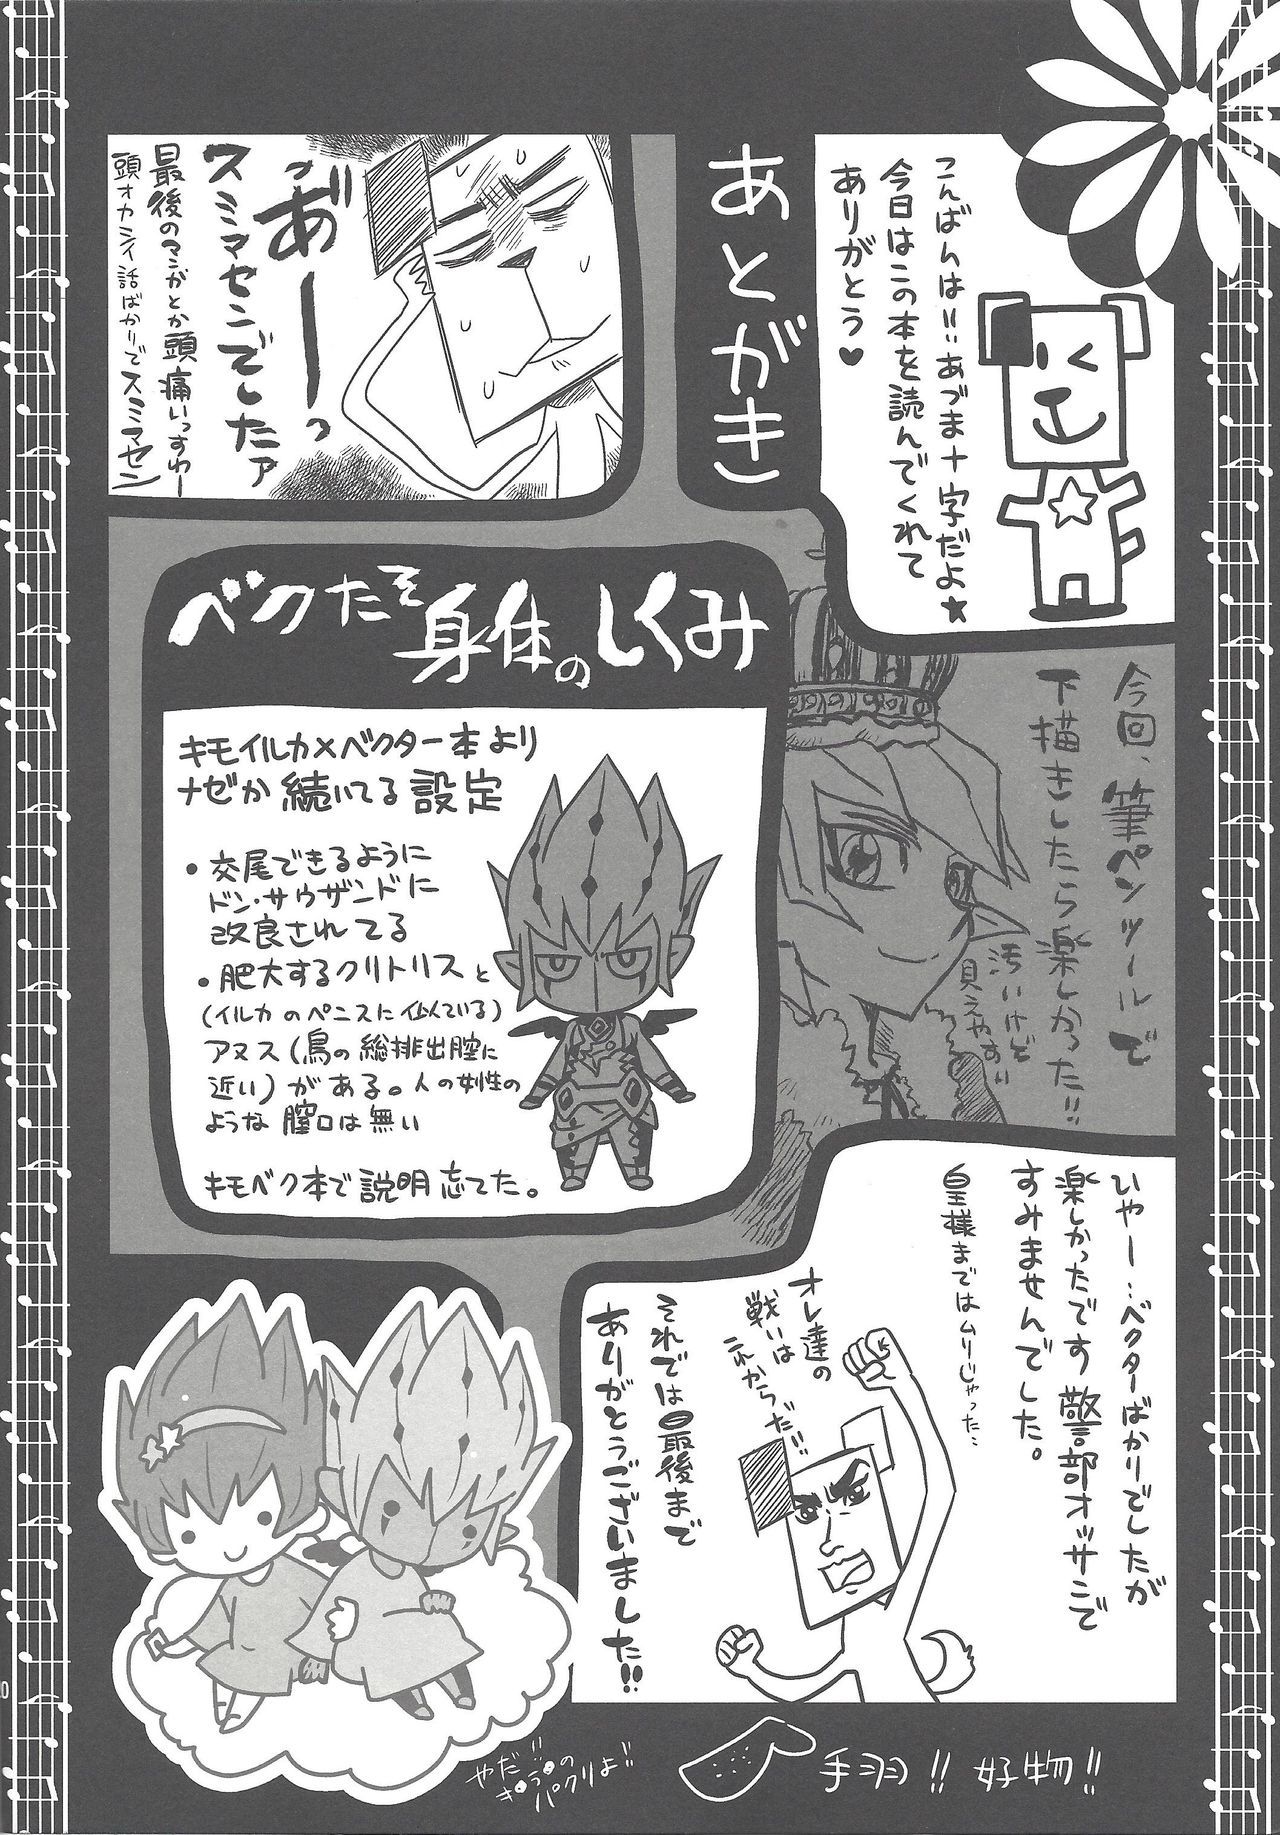 あとがき
こんばんは!!あづま十字だよ★
今日はこの本を読んでくれて
ありがとう♥
あ"ーーっ
スミマセンでしたァ
最後のマンガとか頭痛いっすわー
頭オカシイ話ばかりでスミマセン
今回、筆ペンツールで
下描きしたら楽しかった!!
汚いけど
見えやすい
ベクたそ身体のしくみ
キモイルカ×ベクター本より
ナゼか続いてる設定
・交尾できるように
ドン・サウザンドに
改良されてる
・肥大するクリトリスと
(イルカのペニスに似ている)
アヌス(鳥の総排出腔に
近い)がある。人の女性の
ような膣口は無い
キモベク本で説明忘れてた。
ひゃー…ベクターばかりでしたが
楽しかったです 警部オッサンで
すみませんでした。
皇様まではムリじゃった…
オレ達の
戦いは
これからだ!!
それでは最後まで
ありがとうございました!!
やだ!!
パクリよ!!
手羽!! 好物!!